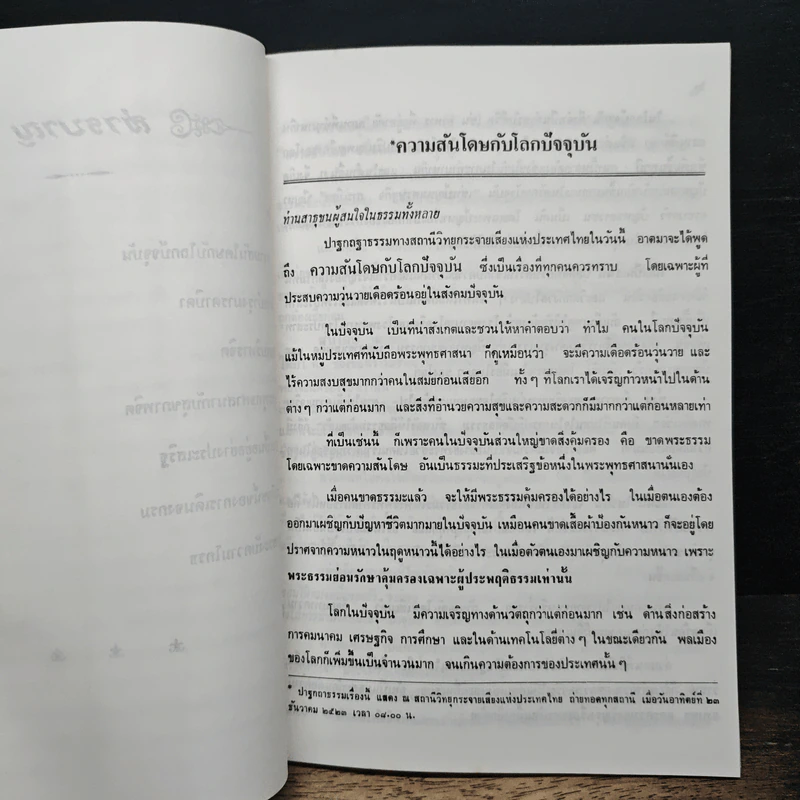 *ความสันโดษกับโลกปัจจุบัน
ท่านสาธุชนผู้สนใจในธรรมทั้งหลาย
ปาฐกถาธรรมทางสถานีวิทยุกระจายเสียงแห่งประเทศไทยในวันนี้ อาตมาจะได้พูด
ถึง ความสันโดษกับโลกปัจจุบัน ซึ่งเป็นเรื่องที่ทุกคนควรทราบ โดยเฉพาะผู้ที่
ประสบความวุ่นวายเดือดร้อนอยู่ในสังคมปัจจุบัน
ในปัจจุบัน เป็นที่น่าสังเกตและชวนให้หาคำตอบว่า ทำไม คนในโลกปัจจุบัน
แม้ในหมู่ประเทศที่นับถือพระพุทธศาสนา ก็ดูเหมือนว่า จะมีความเดือดร้อนวุ่นวาย และ
ไร้ความสงบสุขมากกว่าคนในสมัยก่อนเสียอีก ทั้งๆ ที่โลกเราได้เจริญก้าวหน้าไปในด้าน
ต่างๆ กว่าแต่ก่อนมาก และสิ่งที่อำนวยความสุขและความสะดวกก็มีมากกว่าแต่ก่อนหลายเท่า
ที่เป็นเช่นนี้ ก็เพราะคนในปัจจุบันส่วนใหญ่ขาดสิ่งคุ้มครอง คือ ขาดพระธรรม
โดยเฉพาะขาดความสันโดษ อันเป็นธรรมะที่ประเสริฐข้อหนึ่งในพระพุทธศาสนานั่นเอง
เมื่อคนขาดธรรมะแล้ว จะให้มีพระธรรมคุ้มครองได้อย่างไร ในเมื่อตนเองต้อง
ออกมาเผชิญกับปัญหาชีวิตมากมายในปัจจุบัน เหมือนคนขาดเสื้อผ้าป้องกันหนาว ก็จะอยู่โดย
ปราศจากความหนาวในฤดูหนาวนี้ได้อย่างไร ในเมื่อตัวตนเองมาเผชิญกับความหนาว เพราะ
พระธรรมย่อมรักษาคุ้มครองเฉพาะผู้ประพฤติธรรมเท่านั้น
โลกในปัจจุบัน มีความเจริญทางด้านวัตถุกว่าแต่ก่อนมาก เช่น ด้านสิ่งก่อสร้าง
การคมนาคม เศรษฐกิจ การศึกษา และในด้านเทคโนโลยีต่างๆ ในขณะเดียวกัน พลเมือง
ของโลกก็เพิ่มขึ้นเป็นจำนวนมาก จนเกินความต้องการของประเทศนั้นๆ
* ปาฐกถาธรรมเรื่องนี้ แสดง ณ สถานีวิทยุกระจายเสียงแห่งประเทศไทย ถ่ายทอดทุกสถานี เมื่อวันอาทิตย์ที่ ๒๓
ธันวาคม ๒๕๒๓ เวลา ๐๘.๐๐ น.